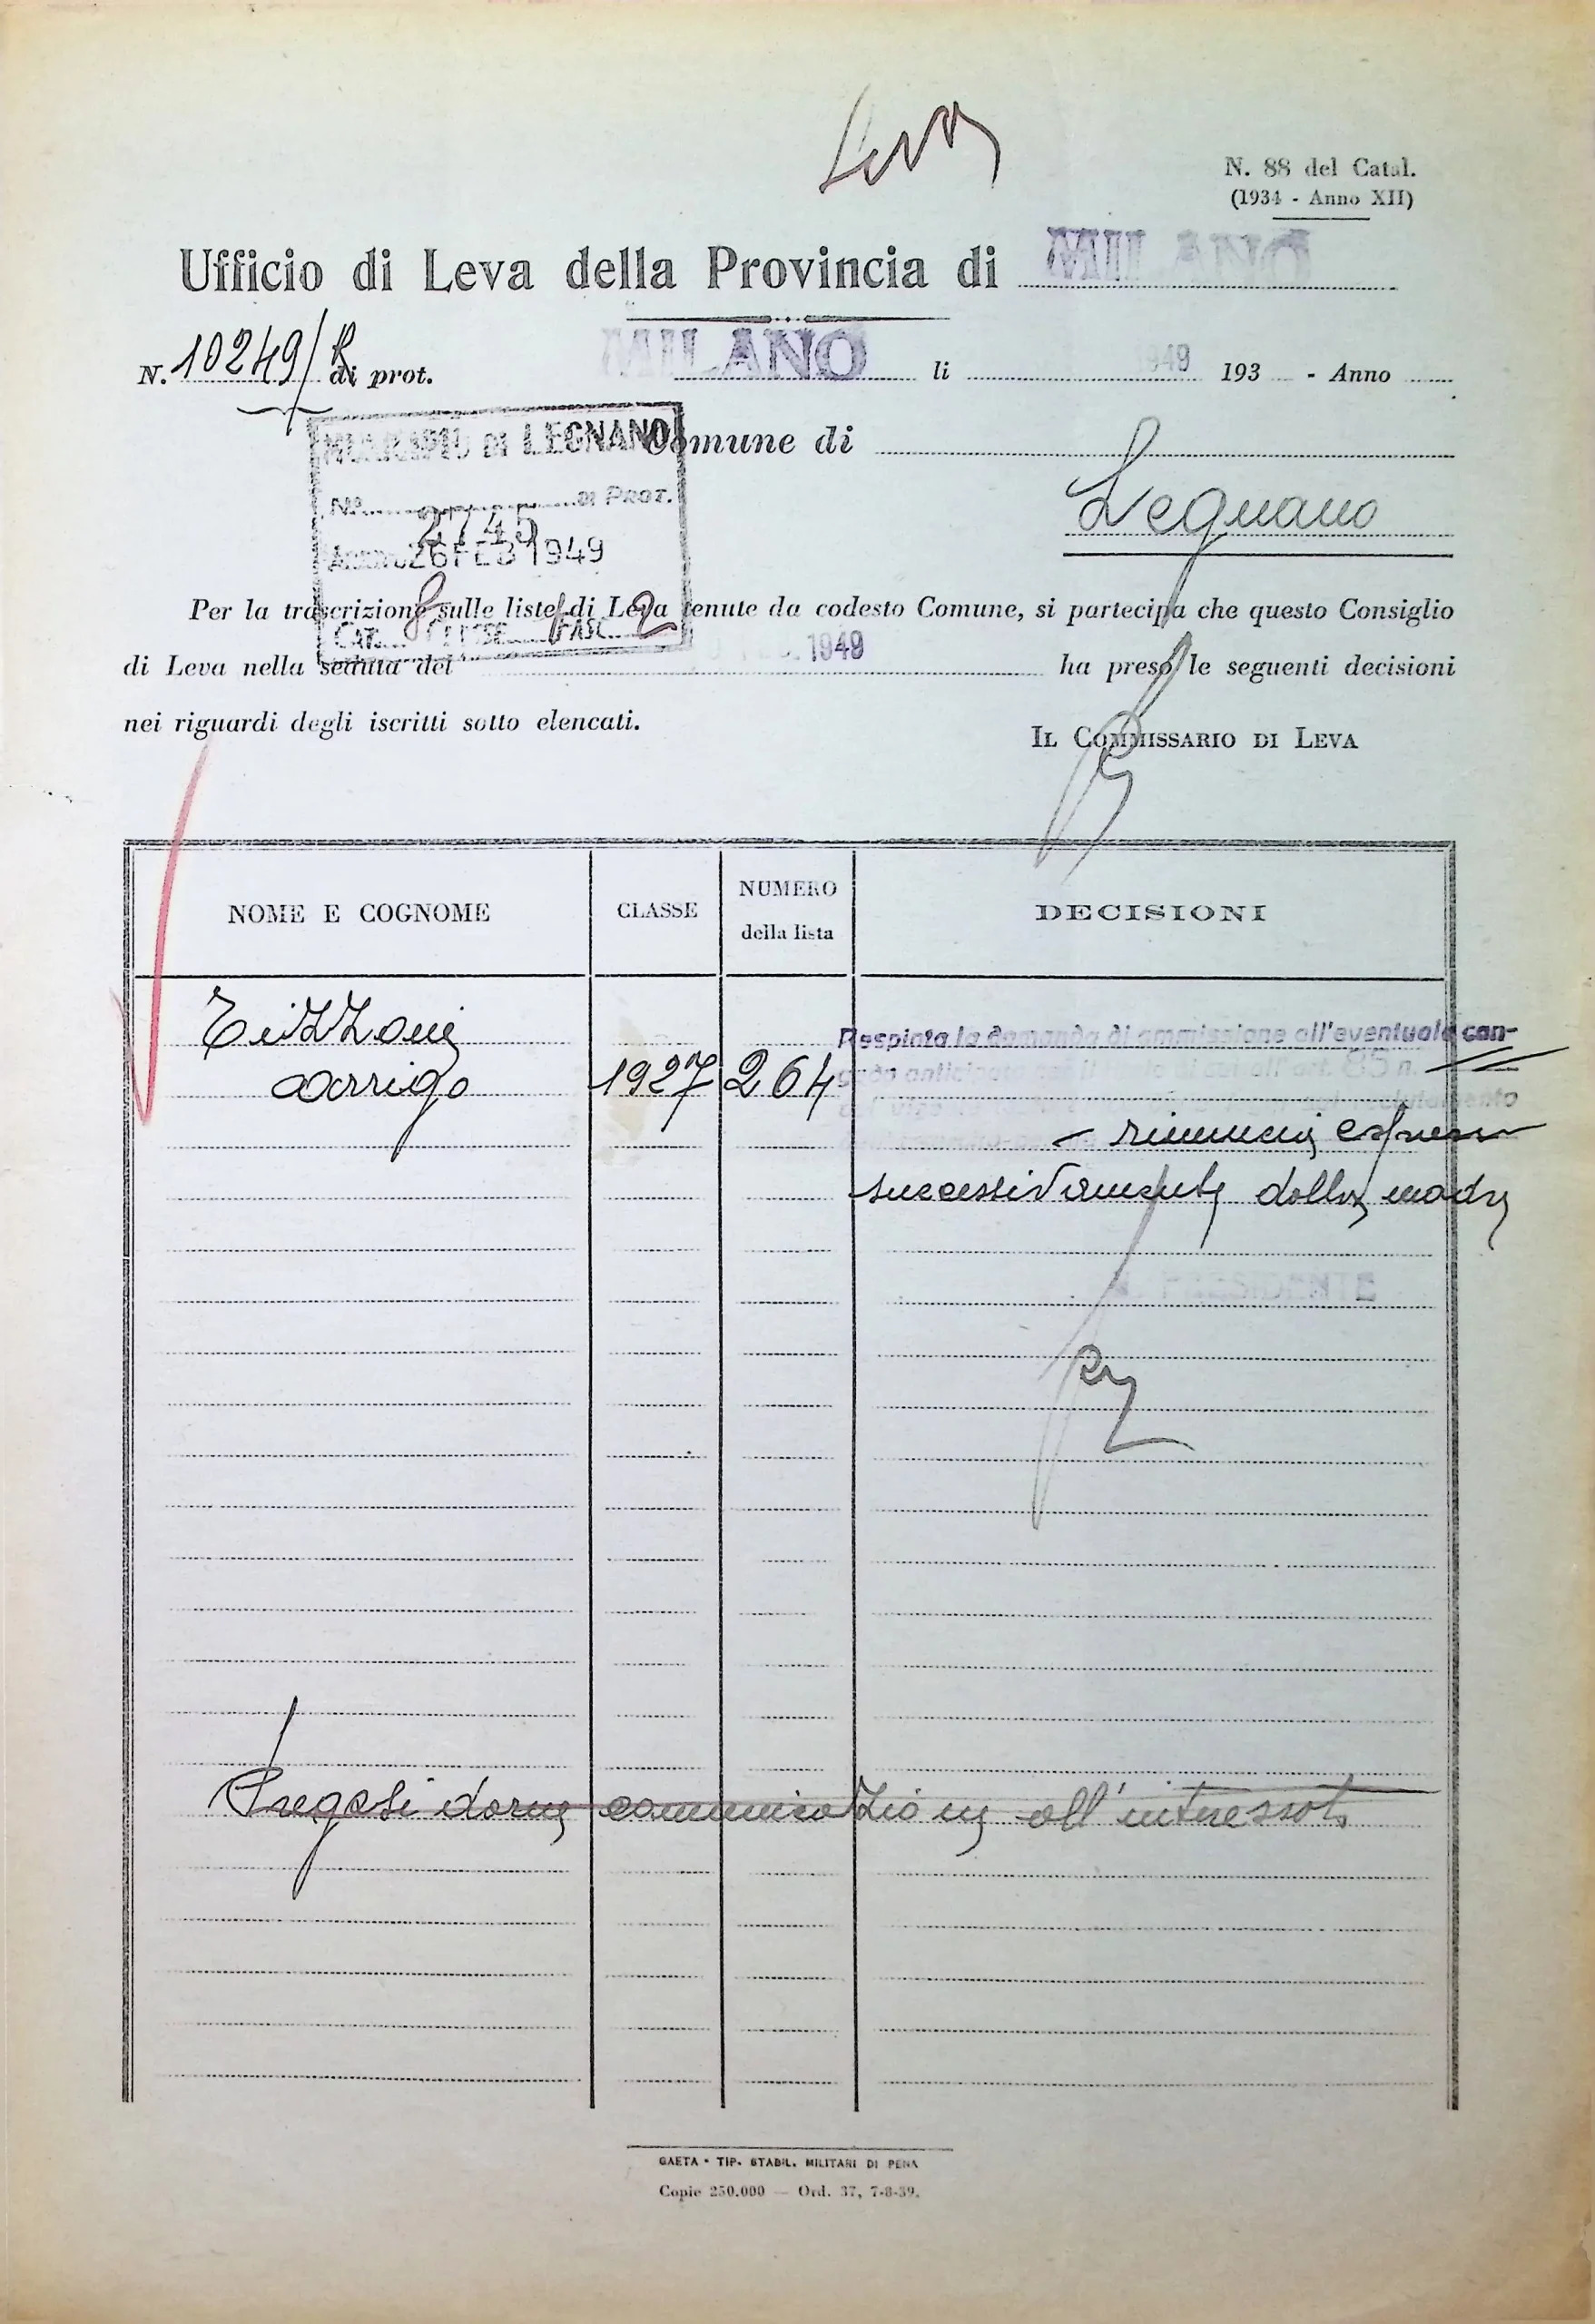 Leva
N. 88 del Catal.
(1934 - Anno XII)
Ufficio di Leva della Provincia di MILANO
N. 10249/R di prot. MILANO li 1949 193 - Anno
MUNICIPIO DI LEGNANO
Comune di
No. 2745 di Prot.
Legnano
26 FEB 1949
Per la trascrizione sulle liste di Leva tenute da codesto Comune, si partecipa che questo Consiglio
Cat. 8 Classe 1 Fasc. 2
di Leva nella seduta del 1949 ha preso le seguenti decisioni
nei riguardi degli iscritti sotto elencati.
Il Commissario di Leva
NOME E COGNOME CLASSE NUMERO della lista DECISIONI
Tizzoni
Respinta la domanda di ammissione all'eventuale con-
Arrigo 1927 264
gedo anticipato art. 85 n.
reclutamento
rinuncia
successivamente dalla madre
PRESIDENTE
Pregasi darne comunicazione all'interessato
GAETA - TIP. STABIL. MILITARI DI PENA
Copie 250.000 — Ord. 37, 7-8-39.